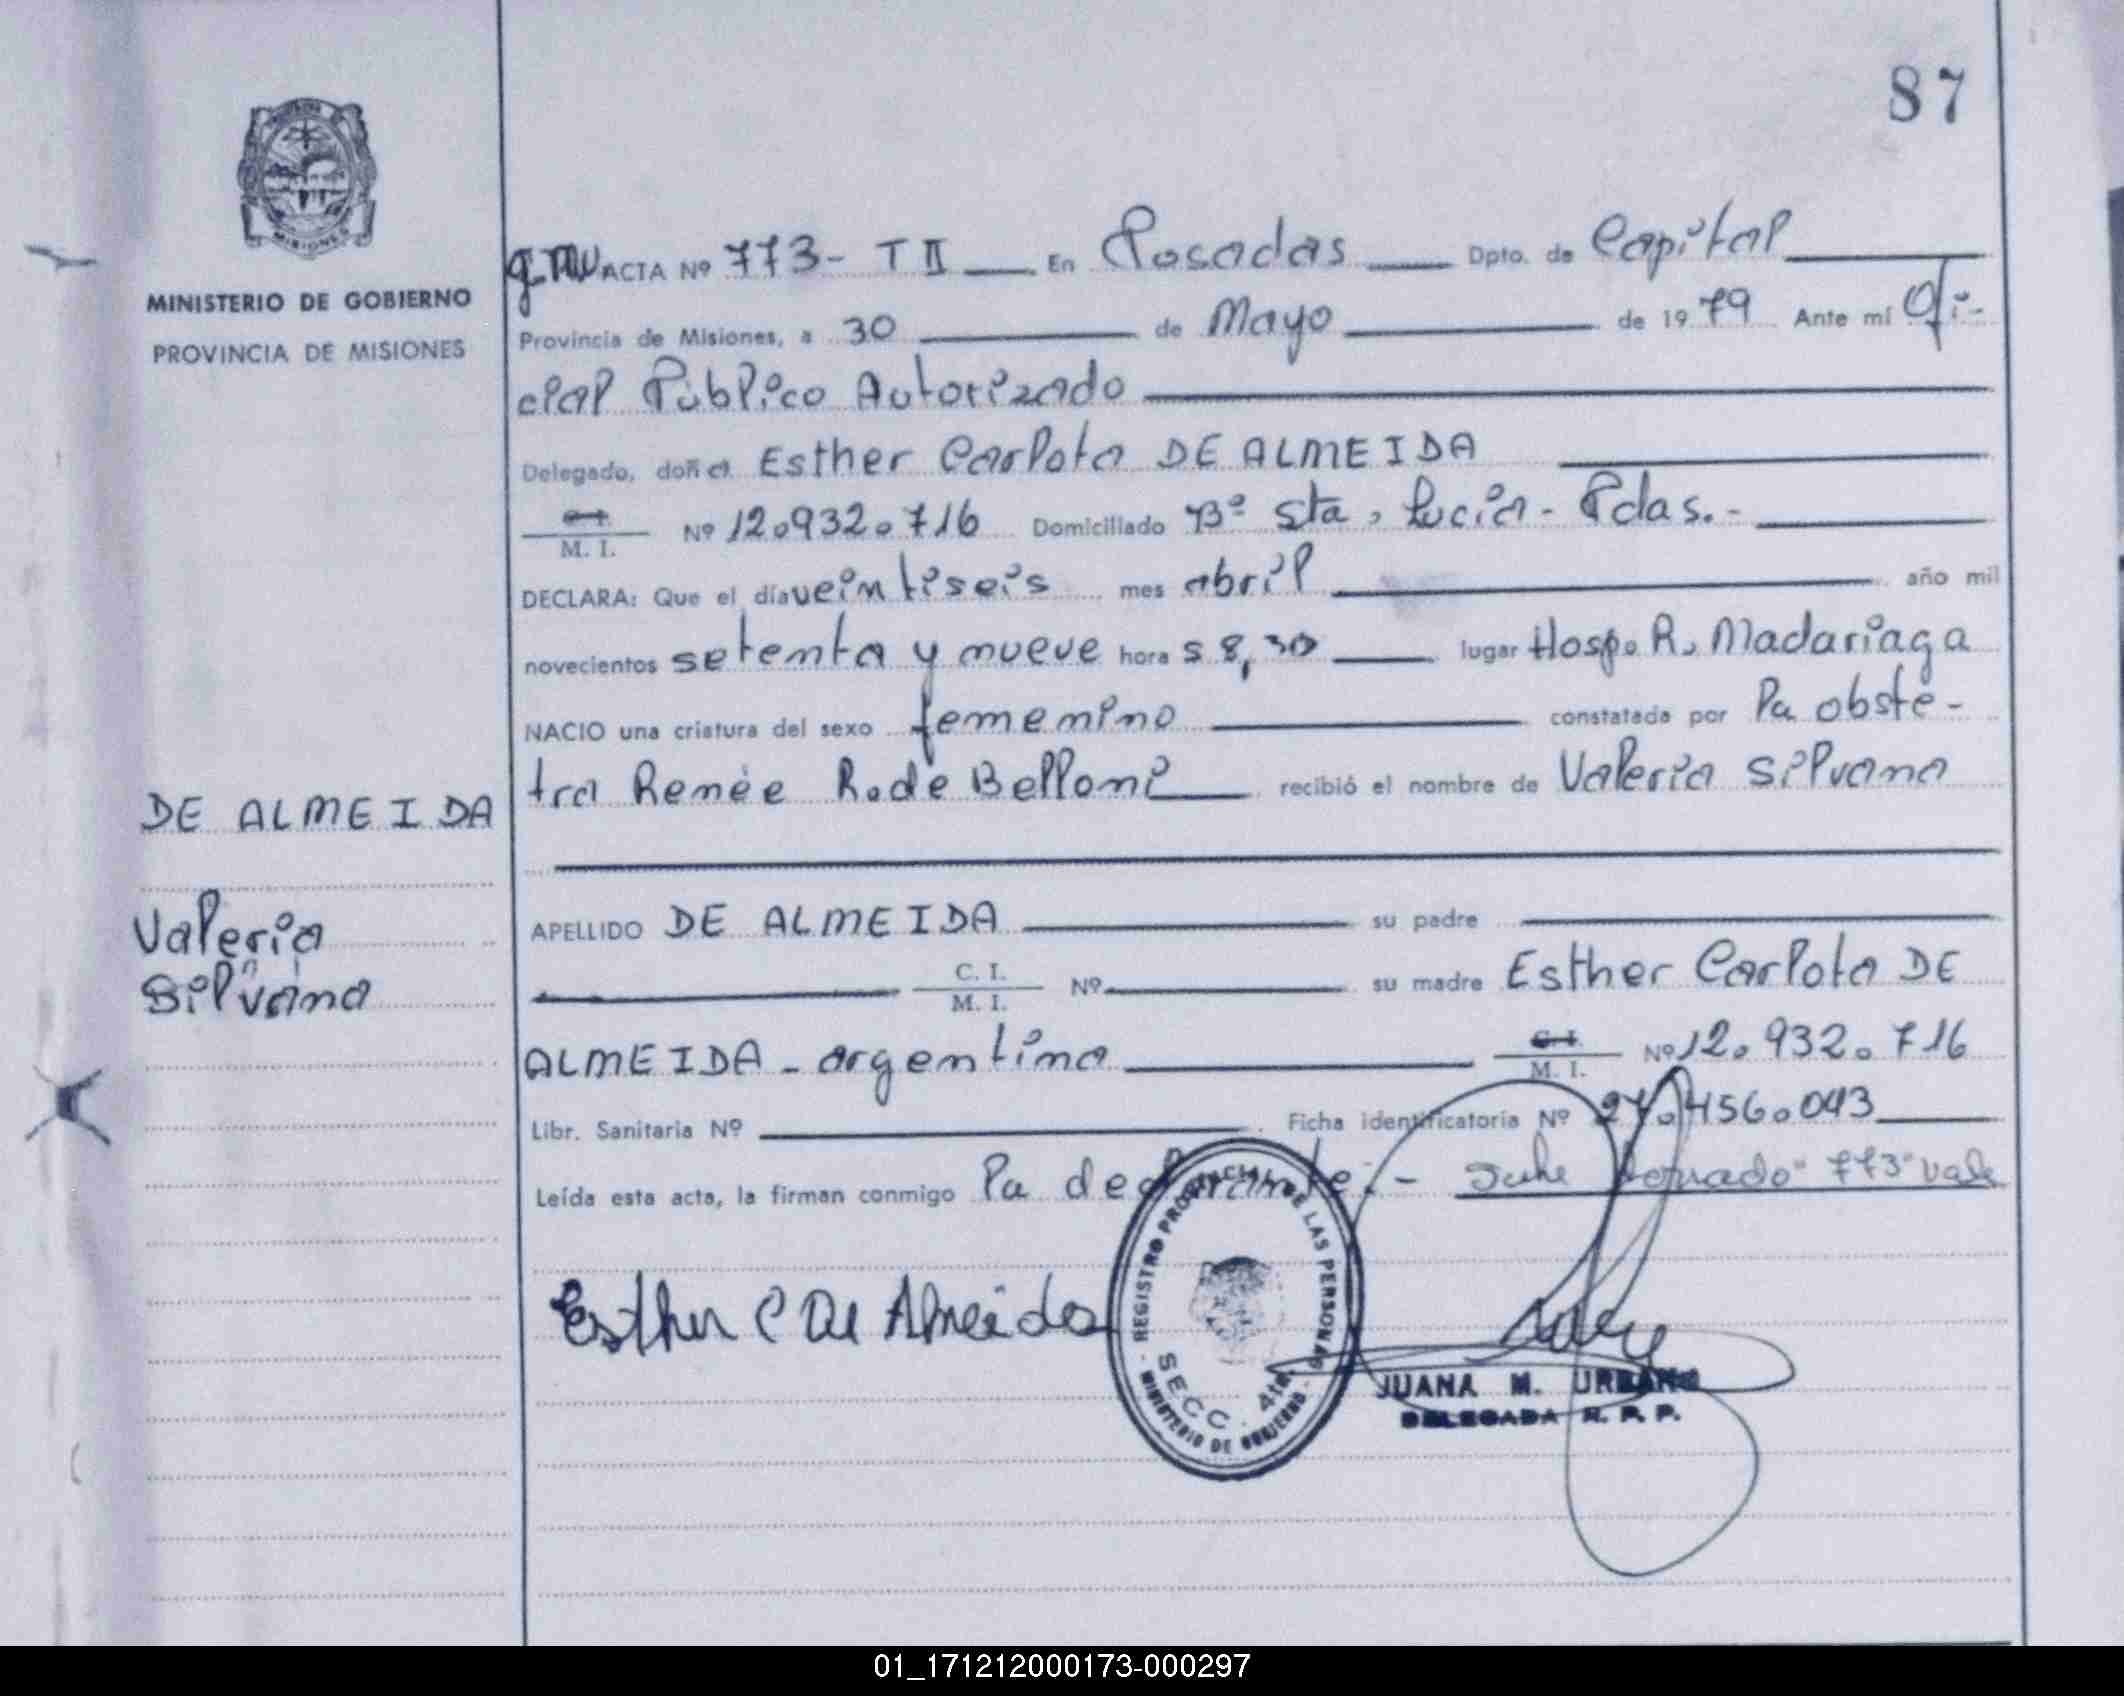 87
MINISTERIO DE GOBIERNO
PROVINCIA DE MISIONES
ACTA Nº 773- T II En Posadas Dpto. de Capital
Provincia de Misiones, a 30 de Mayo de 1979 Ante mí Ofi-
cial Público Autorizado
Delegado, doña Esther Carlota DE ALMEIDA
C. I.
M. I. Nº 12.932.716 Domiciliado Bº Sta. Lucia - Pdas.-
DECLARA: Que el día veintiseis mes abril año mil
novecientos setenta y nueve hora s 8,30 lugar Hosp. R. Madariaga
NACIO una criatura del sexo femenino constatada por la obste-
tra Renée R. de Belloni recibió el nombre de Valeria Silvana
DE ALMEIDA
Valeria
Silvana
APELLIDO DE ALMEIDA su padre
C. I.
M. I. Nº su madre Esther Carlota DE
ALMEIDA - argentina C. I.
M. I. Nº 12.932.716
Libr. Sanitaria Nº Ficha identificatoria Nº 27.456.043
Leída esta acta, la firman conmigo la declarante.- borrado "773" vale
Esther C De Almeida
REGISTRO PROVINCIAL DE LAS PERSONAS
SECC. 4ta.
MINISTERIO DE GOBIERNO
JUANA M. URBANO
DELEGADA R. P. P.
01_171212000173-000297